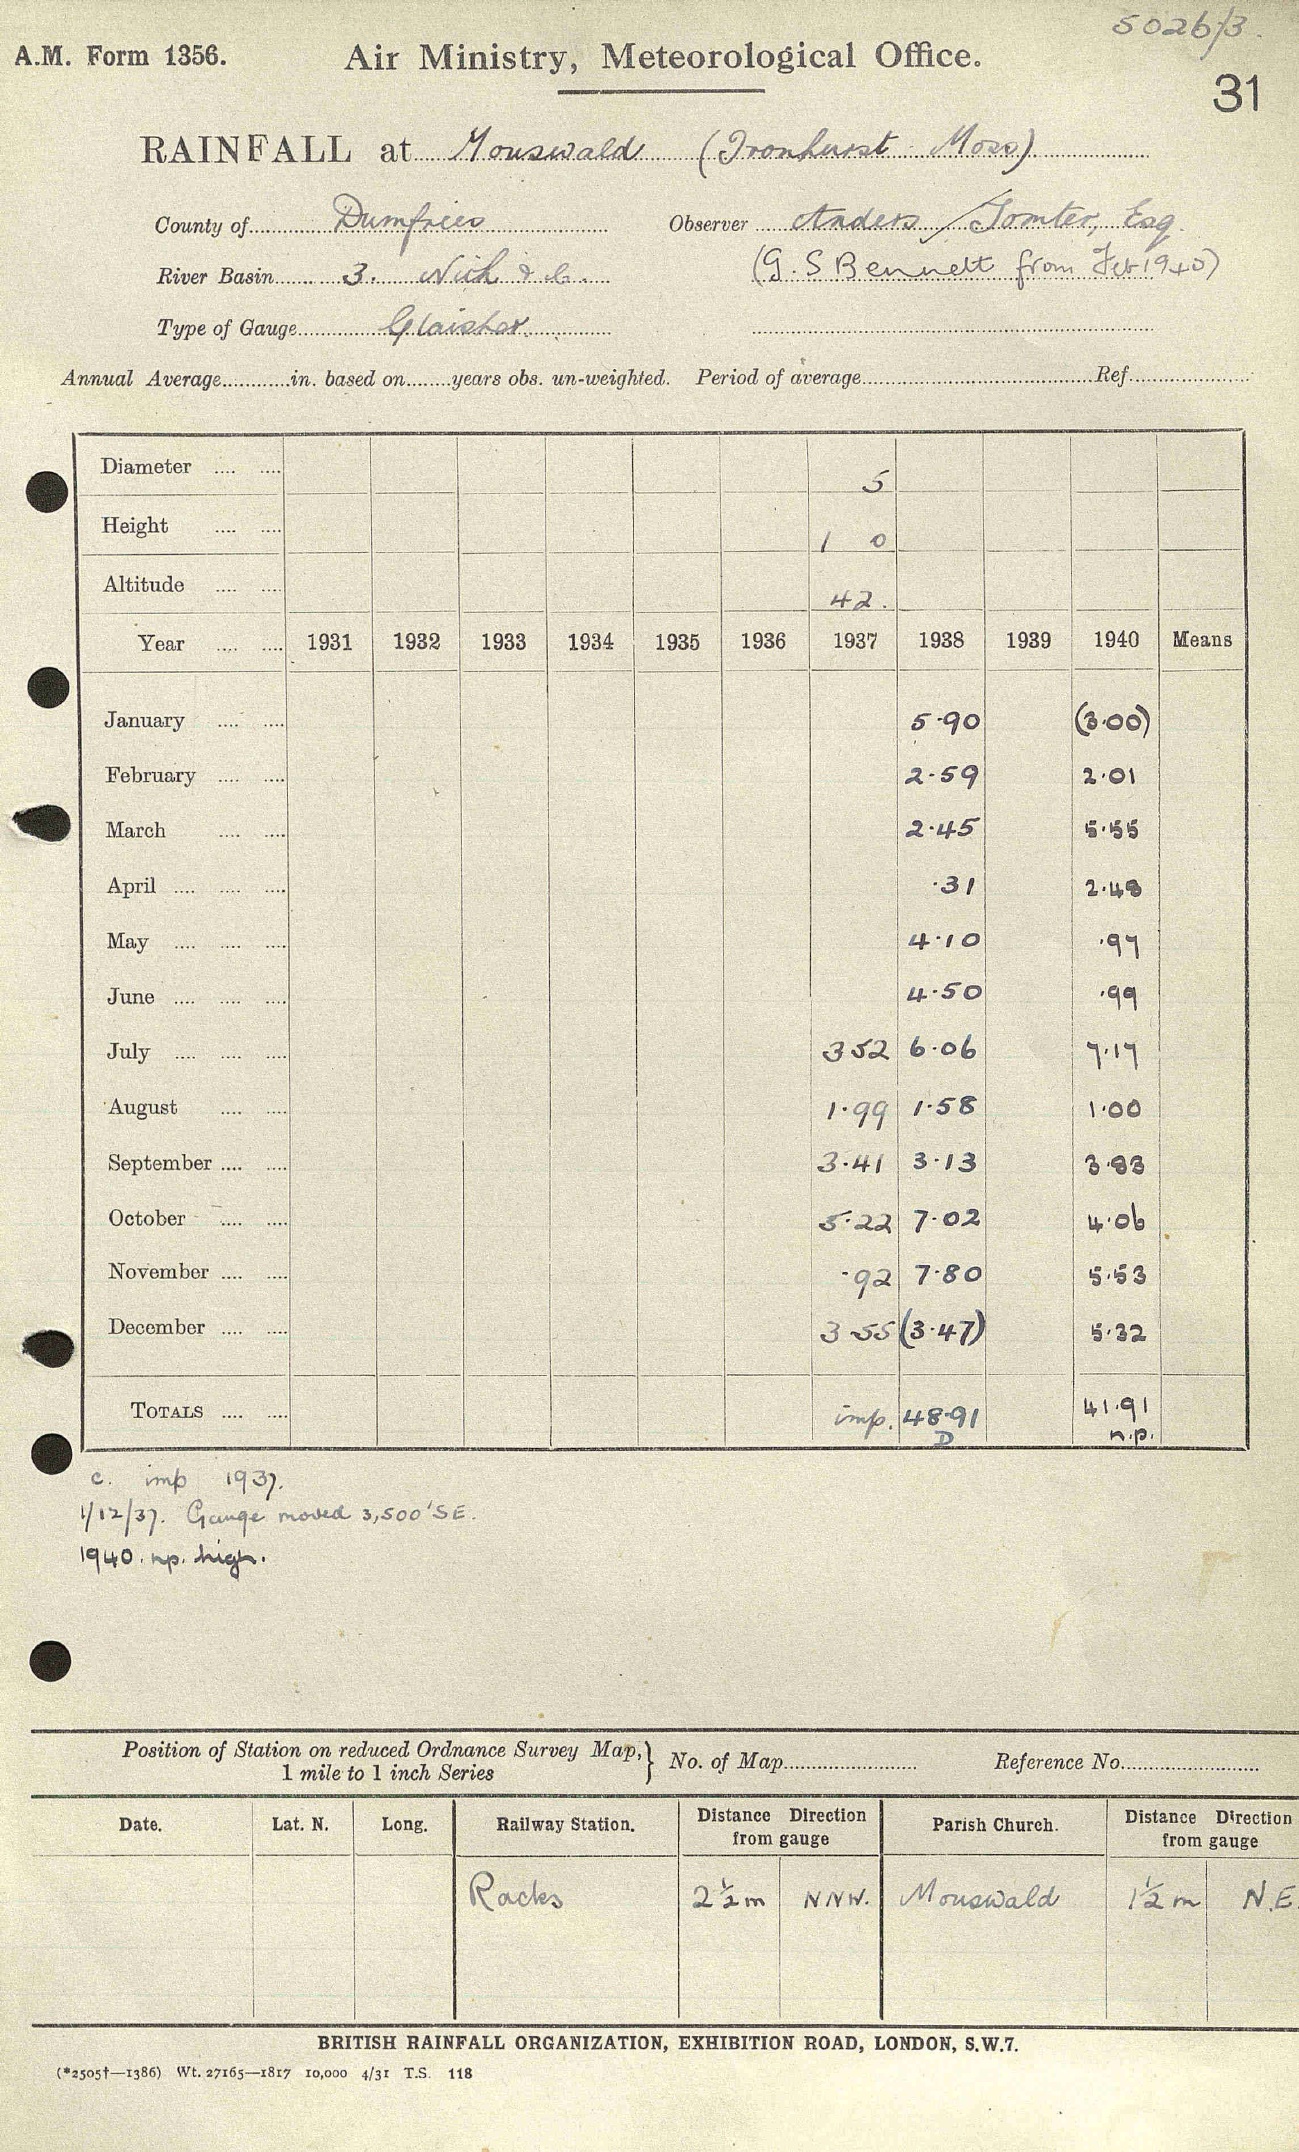 5026/3.
A.M. Form 1356. Air Ministry, Meteorological Office.
31
RAINFALL at Mouswald (Ironhurst Moss)
County of Dumfries Observer Anders Tomter, Esq.
River Basin 3. Nith &c. (G. S Bennett from Feb 1940)
Type of Gauge Glaisher.
Annual Average in. based on years obs. un-weighted. Period of average Ref
Diameter .... .... 5
Height .... .... 1 0
Altitude .... .... 42.
Year .... .... 1931 1932 1933 1934 1935 1936 1937 1938 1939 1940 Means
January .... .... 5.90 (3.00)
February .... .... 2.59 2.01
March .... .... 2.45 5.55
April .... .... .... .31 2.48
May .... .... .... 4.10 .97
June .... .... .... 4.50 .99
July .... .... .... 3 52 6.06 7.17
August .... .... 1.99 1.58 1.00
September .... .... 3.41 3.13 3.83
October .... .... 5.22 7.02 4.06
November .... .... .92 7.80 5.53
December .... .... 3 55 (3.47) 5.32
TOTALS .... .... imp. 48.91 41.91
D n.p.
c. imp 1937.
1/12/37. Gauge moved 3,500' SE.
1940. np. high.
Position of Station on reduced Ordnance Survey Map, } No. of Map Reference No.
1 mile to 1 inch Series
Date. Lat. N. Long. Railway Station. Distance Direction Parish Church. Distance Direction
from gauge from gauge
Racks 2½ m NNW. Mouswald 1½ m N.E.
BRITISH RAINFALL ORGANIZATION, EXHIBITION ROAD, LONDON, S.W.7.
(*2505†—1386) Wt. 27165—1817 10,000 4/31 T.S. 118